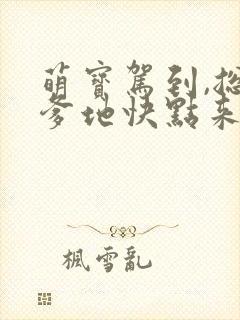 萌寶駕到,總
爹地快點來
楓雪亂